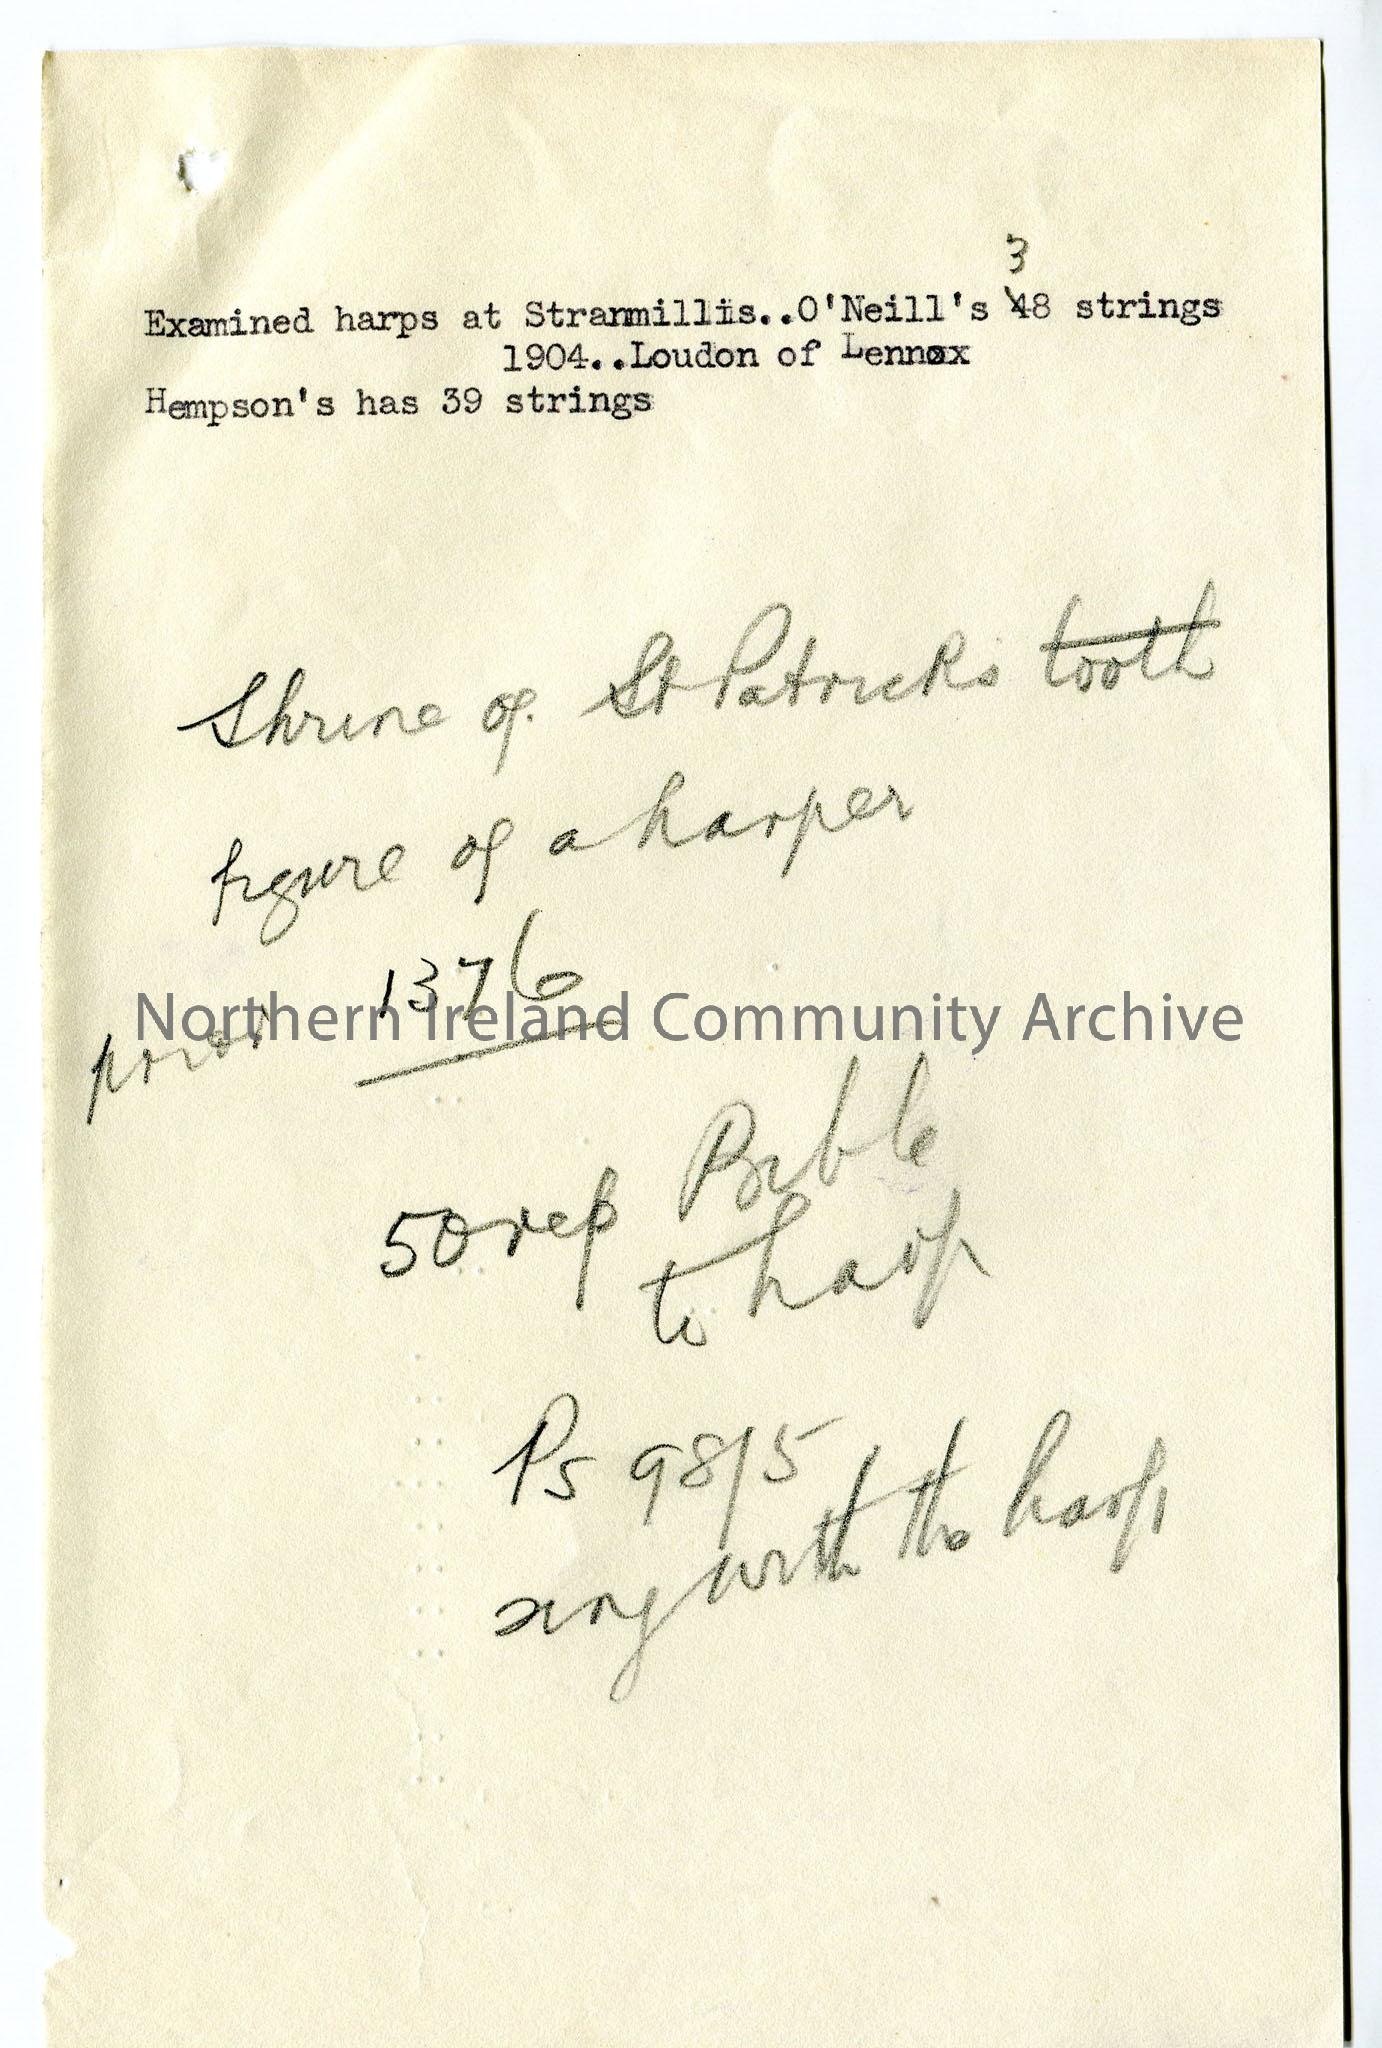 3
Examined harps at Stranmillis..O'Neill's 48 strings
1904..Loudon of Lennox
Hempson's has 39 strings
Shrine of St Patricks tooth
figure of a harper
prior 1376
Northern Ireland Community Archive
50 ref Bible
to harp
Ps 98/5
sing with the harp